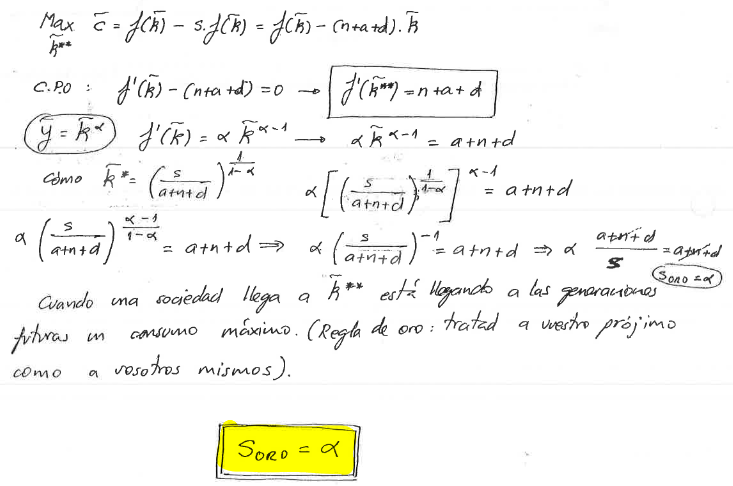 Max c̄ = f(k̃) - s.f(k̃) = f(k̃) - (n+a+d).k̃
k̃**
C.P.O : f'(k̃) - (n+a+d) = 0 → f'(k̃**) = n+a+d
ỹ = k̃^α f'(k̃) = α k̃^(α-1) → α k̃^(α-1) = a+n+d
Cómo k̃* = (s/(a+n+d))^(1/(1-α)) α[(s/(a+n+d))^(1/(1-α))]^(α-1) = a+n+d
α (s/(a+n+d))^((α-1)/(1-α)) = a+n+d ⇒ α (s/(a+n+d))^(-1) = a+n+d ⇒ α (a+n+d)/s = a+n+d
SORO = α
Cuando una sociedad llega a k̃** está llegando a las generaciones
futuras un consumo máximo. (Regla de oro : tratad a vuestro prójimo
como a vosotros mismos).
SORO = α